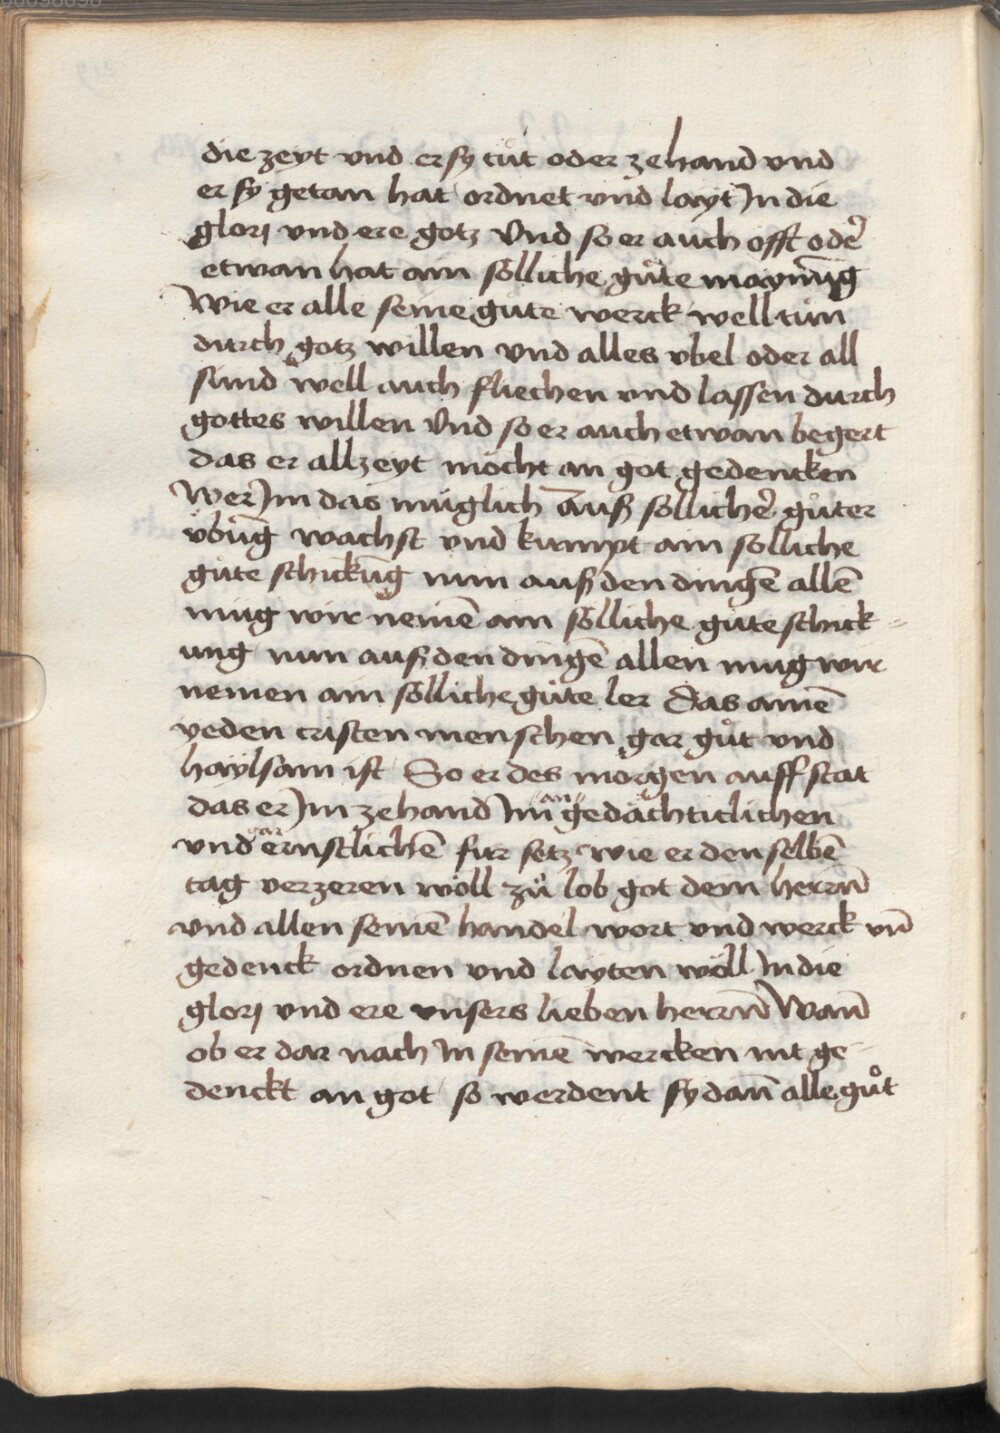 die zeyt vnd er sy tůt oder zehand vnd
er sy getan hat ordnet vnd layt In die
glorj vnd ere gotz Vnd so er auch offt oder̕
etwan hat ain sölliche gůte maynūg
Wie er alle seine gůte werck well tůn
durch gotz willen vnd alles vbel oder all
sünd well auch fliechen vnd lassen durch
gottes willen Vnd so er auch etwan begert
das er allzeyt möcht an got gedencken
Wer Im das muglich Auß sölliche̕ gůter
vbūg wachst vnd kumpt ain solliche
gůte schickūg nun auß den dingē allē
mug wir nemē ain sölliche gůte schick
ung nun auß den dingē allen mug wir
nemen ain sölliche gůte ler Das ainē
yeden cristen menschen gar gůt vnd
haylsam ist So er des morgen auff stat
das er Im zehand Im an gedächticlichen
vnd gar ernstlichē fur setz wie er den selbē
tag verzeren wöll zů lob got dem herrn̄
vnd allen seinē handel wort vnd werck vn̄
gedenck ordnen vnd layten wöll In die
glorj vnd ere vnsers lieben herrn̄ Wan̄
ob er dar nach In seinē wercken nit ge-
denckt an got so werdent sy dan̄ alle gůt